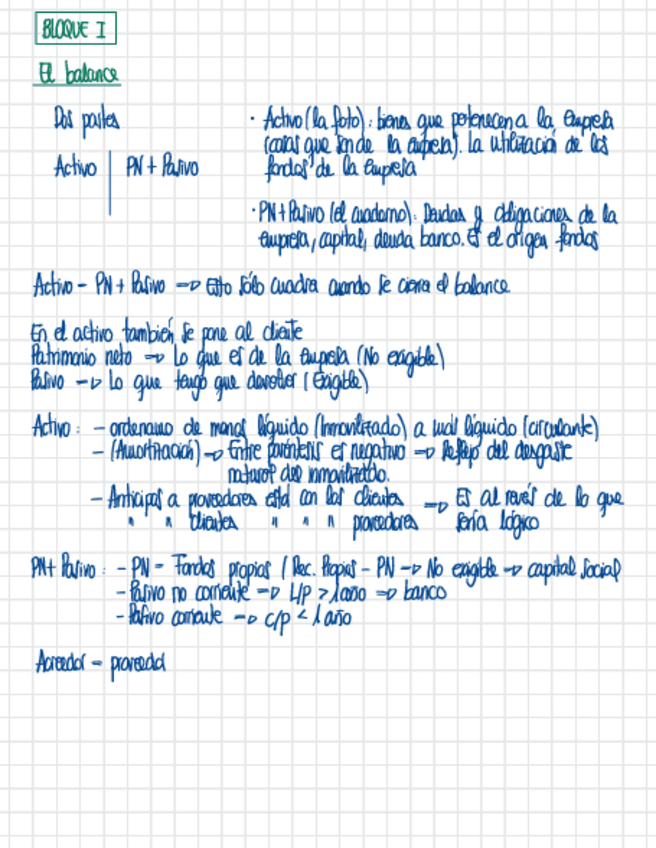 BLOQUE I
El balance
Dos partes
Activo | PN + Pasivo
· Activo (la foto): bienes que pertenecen a la empresa
(cosas que son de la empresa). La utilización de los
fondos de la empresa
· PN + Pasivo (el cuaderno): Deudas y obligaciones de la
empresa, capital, deuda banco. Es el origen fondos
Activo = PN + Pasivo → Esto sólo cuadra cuando se cierra el balance
En el activo también se pone al cliente
Patrimonio neto → Lo que es de la empresa (No exigible)
Pasivo → Lo que tengo que devolver (Exigible)
Activo: - ordenamos de menos líquido (Inmovilizado) a más líquido (circulante)
- (Amortización) → Entre paréntesis es negativo → Reflejo del desgaste
natural del inmovilizado.
- Anticipos a proveedores está con los clientes → Es al revés de lo que
" " clientes " " " proveedores sería lógico
PN + Pasivo: - PN = Fondos propios / Rec. Propios = PN → No exigible → capital social
- Pasivo no corriente → L/p > 1 año → banco
- Pasivo corriente → c/p < 1 año
Acreedor = proveedor